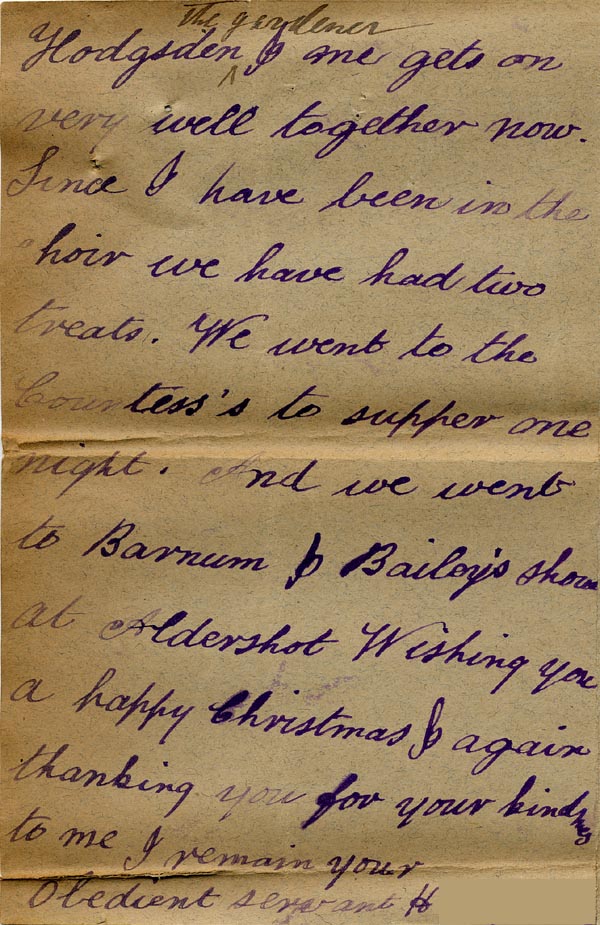 the gardener
Hodgsden & me gets on
very well together now.
Since I have been in the
choir we have had two
treats. We went to the
Countess's to supper one
night. And we went
to Barnum & Bailey's show
at Aldershot Wishing you
a happy Christmas & again
thanking you for your kindness
to me I remain your
Obedient servant H